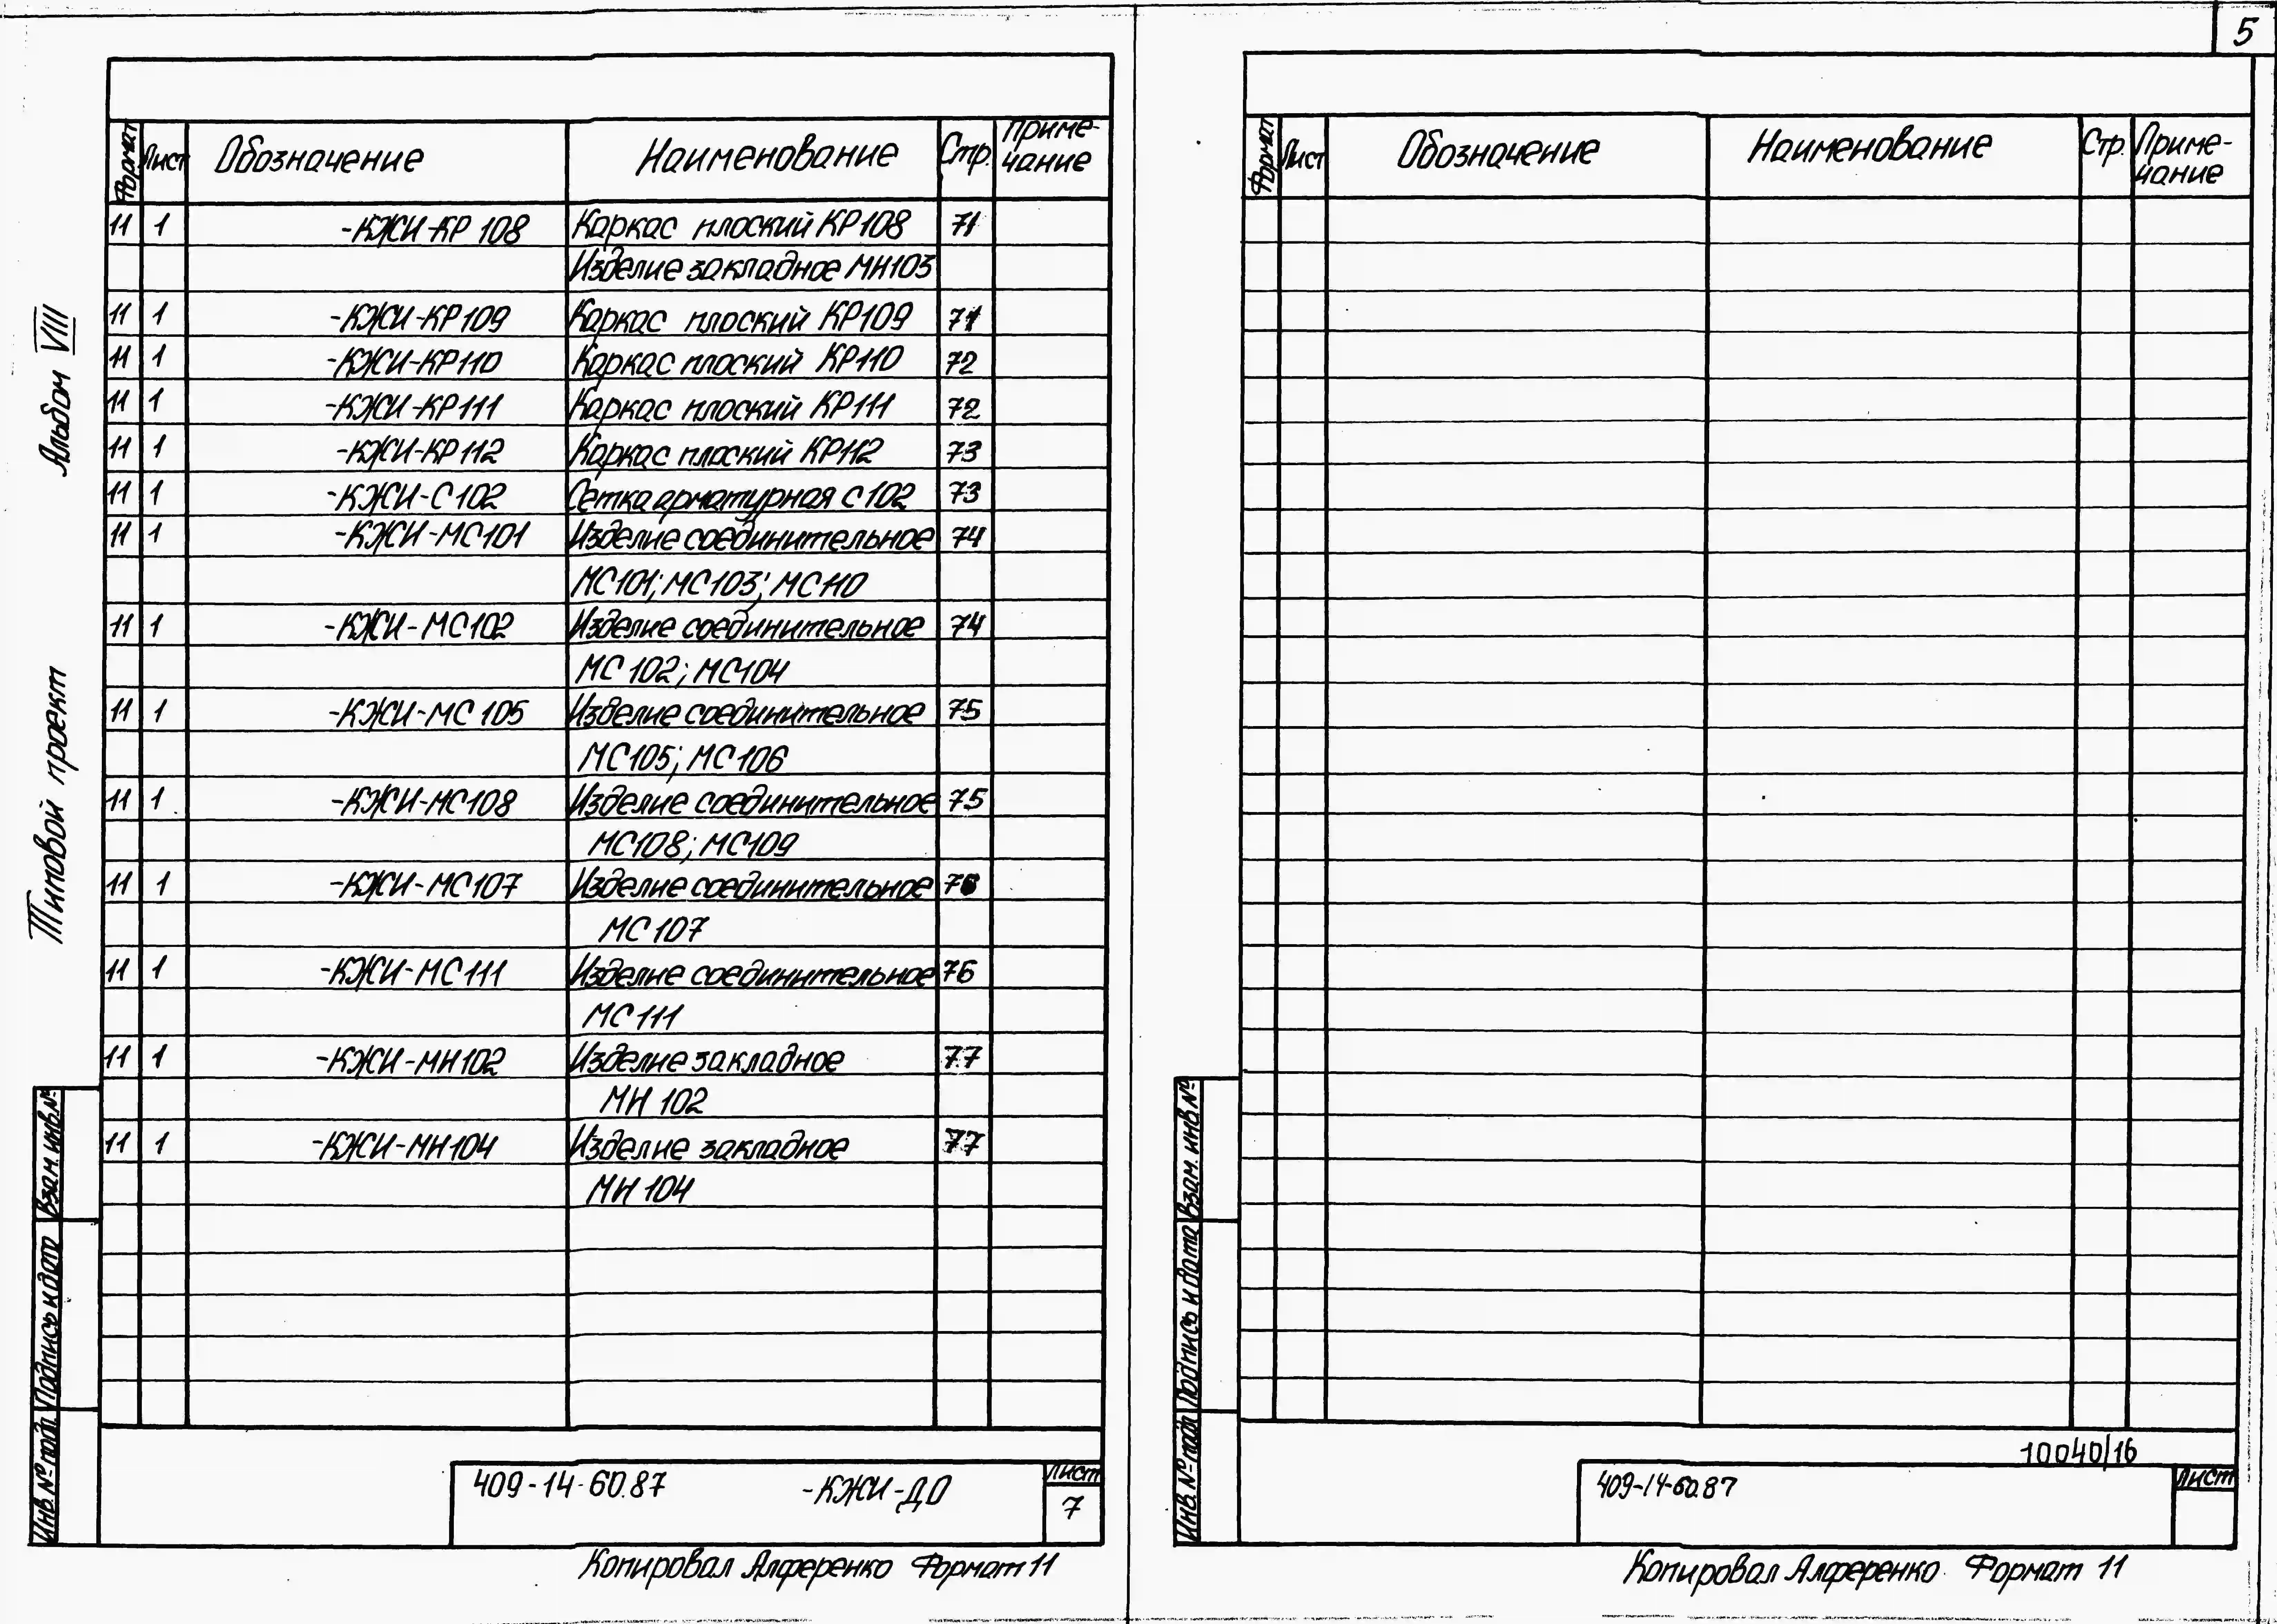 5
Формат Лист Обозначение Наименование Стр. Приме-
чание
11 1 -КЖИ-КР 108 Каркас плоский КР108 71
Изделие закладное МН103
11 1 -КЖИ-КР109 Каркас плоский КР109 71
11 1 -КЖИ-КР110 Каркас плоский КР110 72
11 1 -КЖИ-КР111 Каркас плоский КР111 72
11 1 -КЖИ-КР112 Каркас плоский КР112 73
11 1 -КЖИ-С102 Сетка арматурная С102 73
11 1 -КЖИ-МС101 Изделие соединительное 74
МС101; МС103; МС110
11 1 -КЖИ-МС102 Изделие соединительное 74
МС 102; МС104
11 1 -КЖИ-МС 105 Изделие соединительное 75
МС105; МС106
11 1 -КЖИ-МС108 Изделие соединительное 75
МС108; МС109
11 1 -КЖИ-МС107 Изделие соединительное 76
МС 107
11 1 -КЖИ-МС111 Изделие соединительное 76
МС 111
11 1 -КЖИ-МН102 Изделие закладное 77
МН 102
11 1 -КЖИ-МН104 Изделие закладное 77
МН 104
Альбом VIII
Типовой проект
Взам. инв.№
Подпись и дата
Инв.№ подл
409-14-60.87 -КЖИ-ДО
Лист
7
Копировал Алференко Формат 11
Формат Лист Обозначение Наименование Стр. Приме-
чание
Взам. инв.№
Подпись и дата
Инв.№ подл
10040/16
409-14-60.87
Лист
Копировал Алференко Формат 11